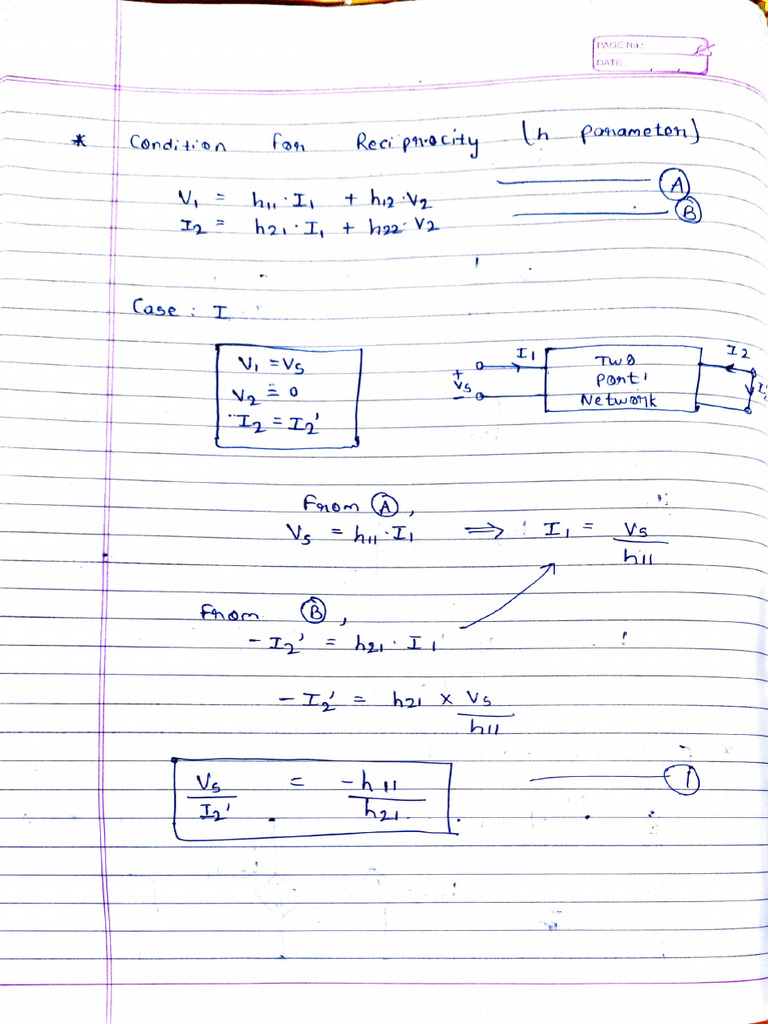 PAGE No.:
DATE:
* Condition for Reciprocity (h parameter)
V₁ = h₁₁·I₁ + h₁₂·V₂ Ⓐ
I₂ = h₂₁·I₁ + h₂₂·V₂ Ⓑ
Case: I
V₁ = Vs
V₂ = 0
I₂ = I₂'
I₁
+
Vs
-
Two
Port
Network
I₂
From Ⓐ,
Vs = h₁₁·I₁ ⇒ I₁ = Vs/h₁₁
From Ⓑ,
-I₂' = h₂₁·I₁
-I₂' = h₂₁ × Vs/h₁₁
Vs/I₂' = -h₁₁/h₂₁ ①